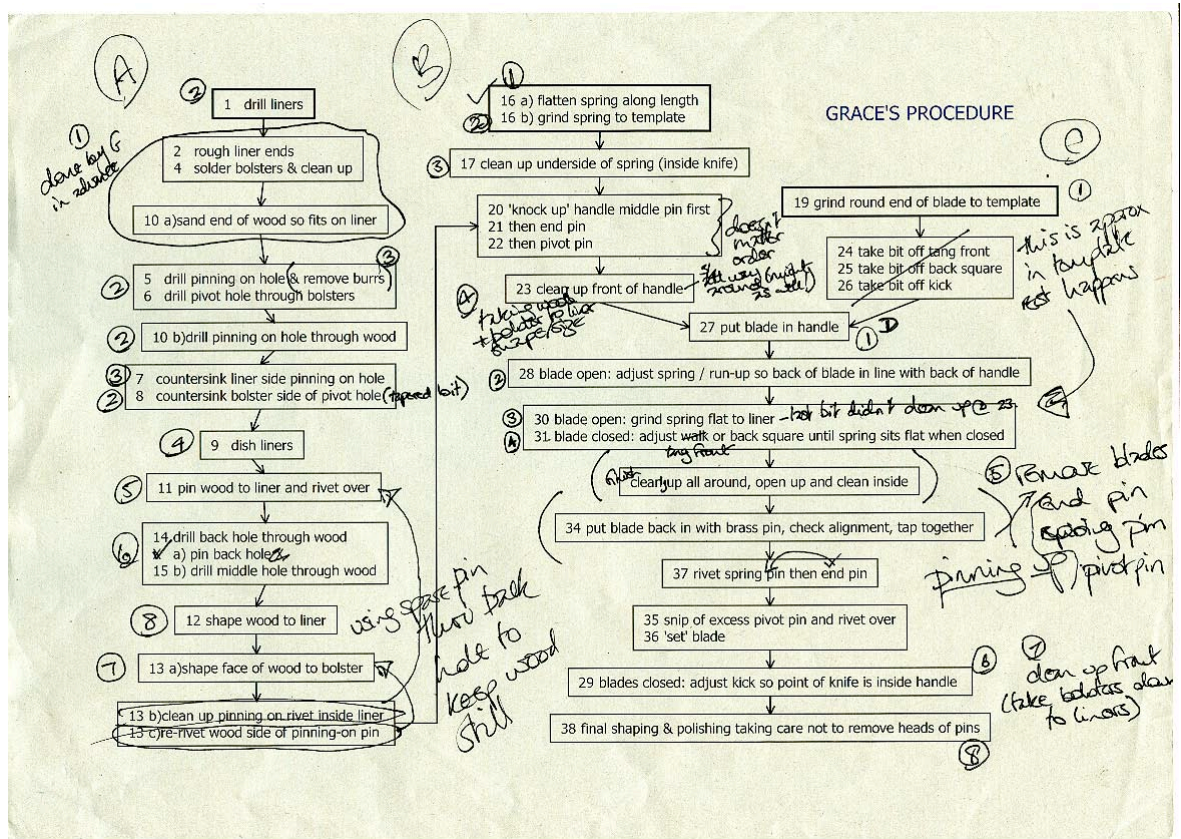 GRACE'S PROCEDURE
A
2
1 drill liners
1
done by G
in advance
2 rough liner ends
4 solder bolsters & clean up
10 a)sand end of wood so fits on liner
3
2
5 drill pinning on hole (& remove burrs)
6 drill pivot hole through bolsters
2
10 b)drill pinning on hole through wood
3
7 countersink liner side pinning on hole
2
8 countersink bolster side of pivot hole (tapered bit)
4
9 dish liners
5
11 pin wood to liner and rivet over
6
14 drill back hole through wood
a) pin back hole
15 b) drill middle hole through wood
8
12 shape wood to liner
7
13 a)shape face of wood to bolster
13 b)clean up pinning on rivet inside liner
13 c)re-rivet wood side of pinning-on pin
using spare pin
thru back
hole to
keep wood
still
B
1
16 a) flatten spring along length
2
16 b) grind spring to template
3
17 clean up underside of spring (inside knife)
20 'knock up' handle middle pin first
21 then end pin
22 then pivot pin
doesn't
matter
order
23 clean up front of handle
4
taking wood
+ bolster to liner
shape size
C
1
19 grind round end of blade to template
24 take bit off tang front
25 take bit off back square
26 take bit off kick
this is approx
in template
rest happens
27 put blade in handle
1
D
2
28 blade open: adjust spring / run-up so back of blade in line with back of handle
3
30 blade open: grind spring flat to liner - last bit didn't clean up @ 23
4
31 blade closed: adjust walk or back square until spring sits flat when closed
tang front
clean up all around, open up and clean inside
34 put blade back in with brass pin, check alignment, tap together
5
remove blades
end pin
spring pin
pivot pin
pinning up
37 rivet spring pin then end pin
35 snip of excess pivot pin and rivet over
36 'set' blade
6
29 blades closed: adjust kick so point of knife is inside handle
7
clean up front
(take bolsters down
to liners)
38 final shaping & polishing taking care not to remove heads of pins
8